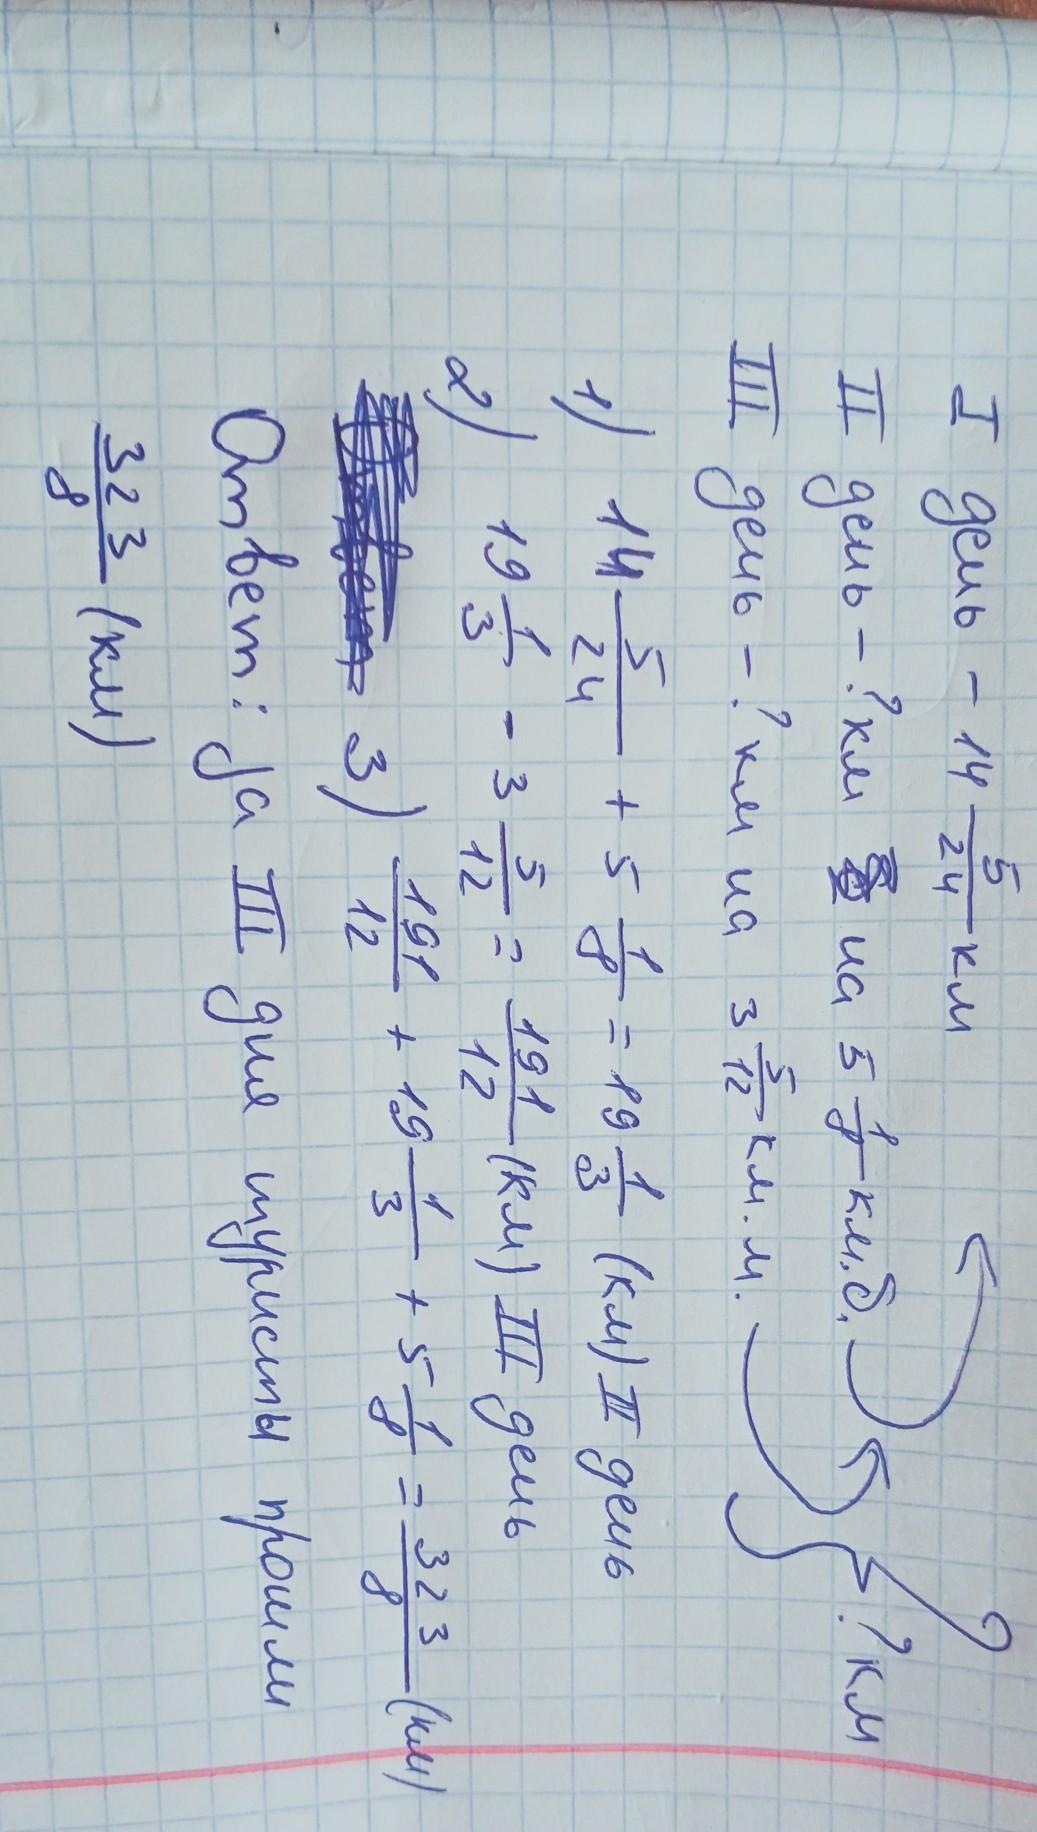 I день - 14 5/24 км
II день - ? км на 5 1/8 км.б.
III день - ? км на 3 5/12 км.м.
? км
1) 14 5/24 + 5 1/8 = 19 1/3 (км) II день
2) 19 1/3 - 3 5/12 = 191/12 (км) III день
3) 191/12 + 19 1/3 + 5 1/8 = 323/8 (км)
Ответ: за III дня туристы прошли
323/8 (км)